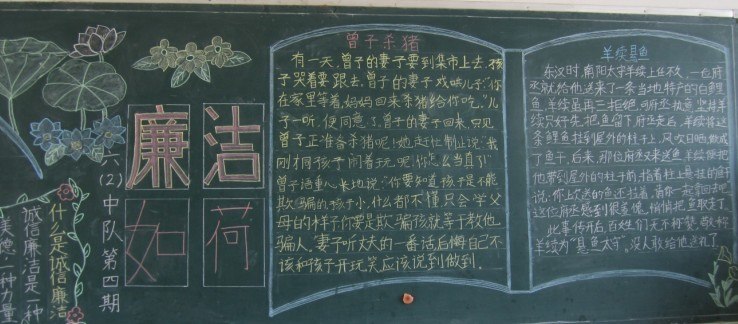 什么是诚信廉洁
诚信廉洁是一种
美德,一种力量
六(2)中队第四期
廉洁
如荷
曾子杀猪
有一天,曾子的妻子要到集市上去,孩
子哭着要跟去,曾子的妻子戏哄儿子:“你
在家里等着,妈妈回来杀猪给你吃。”儿
子一听,便同意了。曾子的妻子回来,只见
曾子正准备杀猪呢!她赶忙制止说:“我
刚才和孩子闹着玩呢,你怎么当真了!”
曾子语重心长地说:“你要知道孩子是不能
欺骗的,孩子小,什么都不懂,只会学父
母的样子,你要是欺骗孩就等于教他
骗人。”妻子听丈夫的一番话后悔自己不
该和孩子开玩笑,应该说到做到.
羊续悬鱼
东汉时,南阳太守羊续上任不久,一位府
丞就给他送来了一条当地特产的白鲤
鱼,羊续品再三拒绝,可府丞执意坚持,羊
续只好先把鱼留下,府丞走后,羊续将这
条鲤鱼挂到屋外的柱子上,风吹日晒,做成
了鱼干,后来,那位府丞又来送鱼,羊续便把
他带到屋外的柱子前,指着柱上悬挂的鲜
说:你上次送的鱼还挂着,请你一起拿回去吧
这位府丞感到很羞愧,悄悄把鱼取走了。
此事传开后,百姓们无不称赞,敬称
羊续为“悬鱼太守”。没人敢给他送礼了